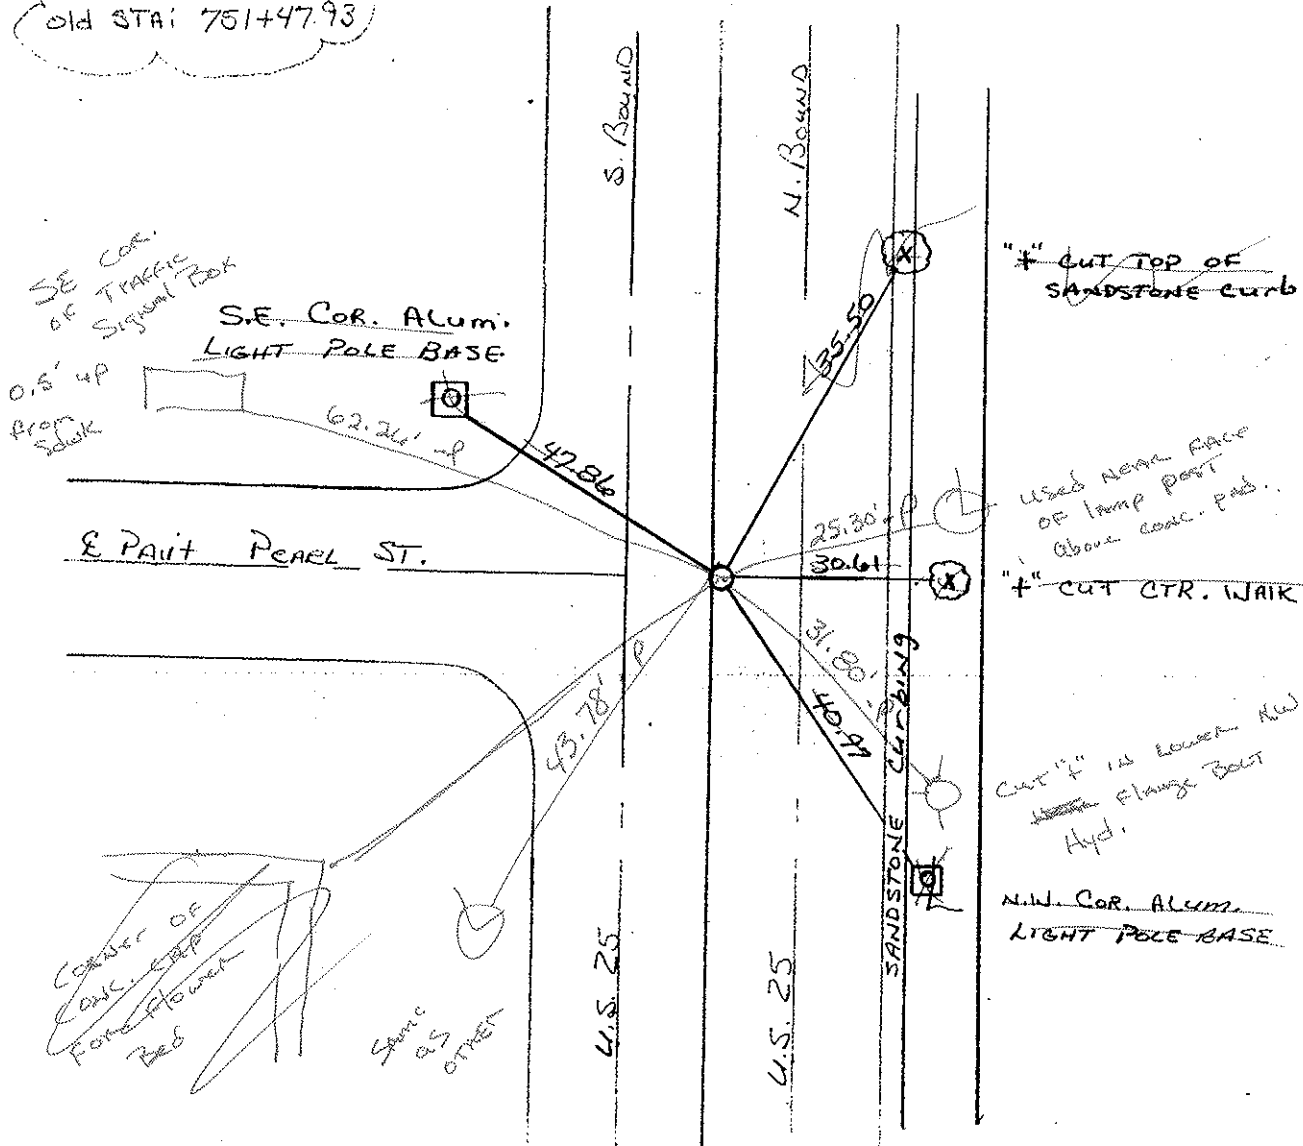 Old STA: 751+47.93
S. BOUND
N. BOUND
SE COR.
OF TRAFFIC
Signal Box
0.5' up
from
Sdwk
S.E. COR. ALUM.
LIGHT POLE BASE
62.26'
47.86
35.50
"+" CUT TOP OF
SANDSTONE Curb
25.30'
used NEAR FACE
OF lamp post
above conc. pad.
30.61
"+" CUT CTR. WALK
℄ PAV't PEARL ST.
31.80'
43.78'
40.97
SANDSTONE CURBING
CUT "+" IN LOWER NW
Flange BOLT
Hyd.
N.W. COR. ALUM.
LIGHT POLE BASE
CORNER OF
CONC. CAP
FOR Flower
Bed
SAME
AS
OTHER
U.S. 25
U.S. 25